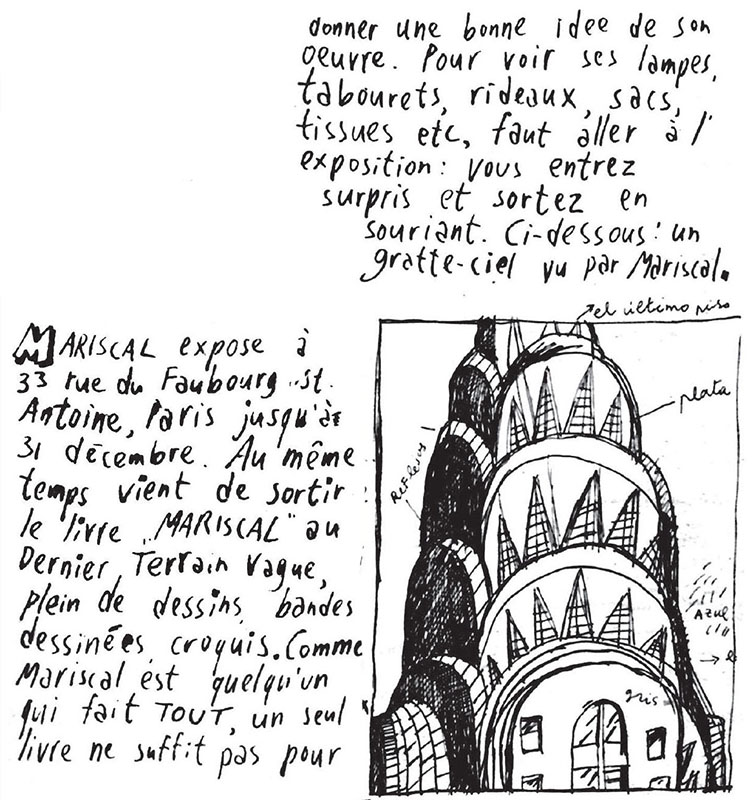 MARISCAL expose à
33 rue du Faubourg St.
Antoine, Paris jusqu'à
31 décembre. Au même
temps vient de sortir
le livre „MARISCAL" au
Dernier Terrain Vague,
plein de dessins, bandes
dessinées, croquis. Comme
Mariscal est quelqu'un
qui fait TOUT, un seul
livre ne suffit pas pour
donner une bonne idee de son
oeuvre. Pour voir ses lampes,
tabourets, rideaux, sacs,
tissues etc, faut aller à l'
exposition: vous entrez
surpris et sortez en
souriant. Ci-dessous: un
gratte-ciel vu par Mariscal.
el último piso
plata
Reflejos
AZUL
gris